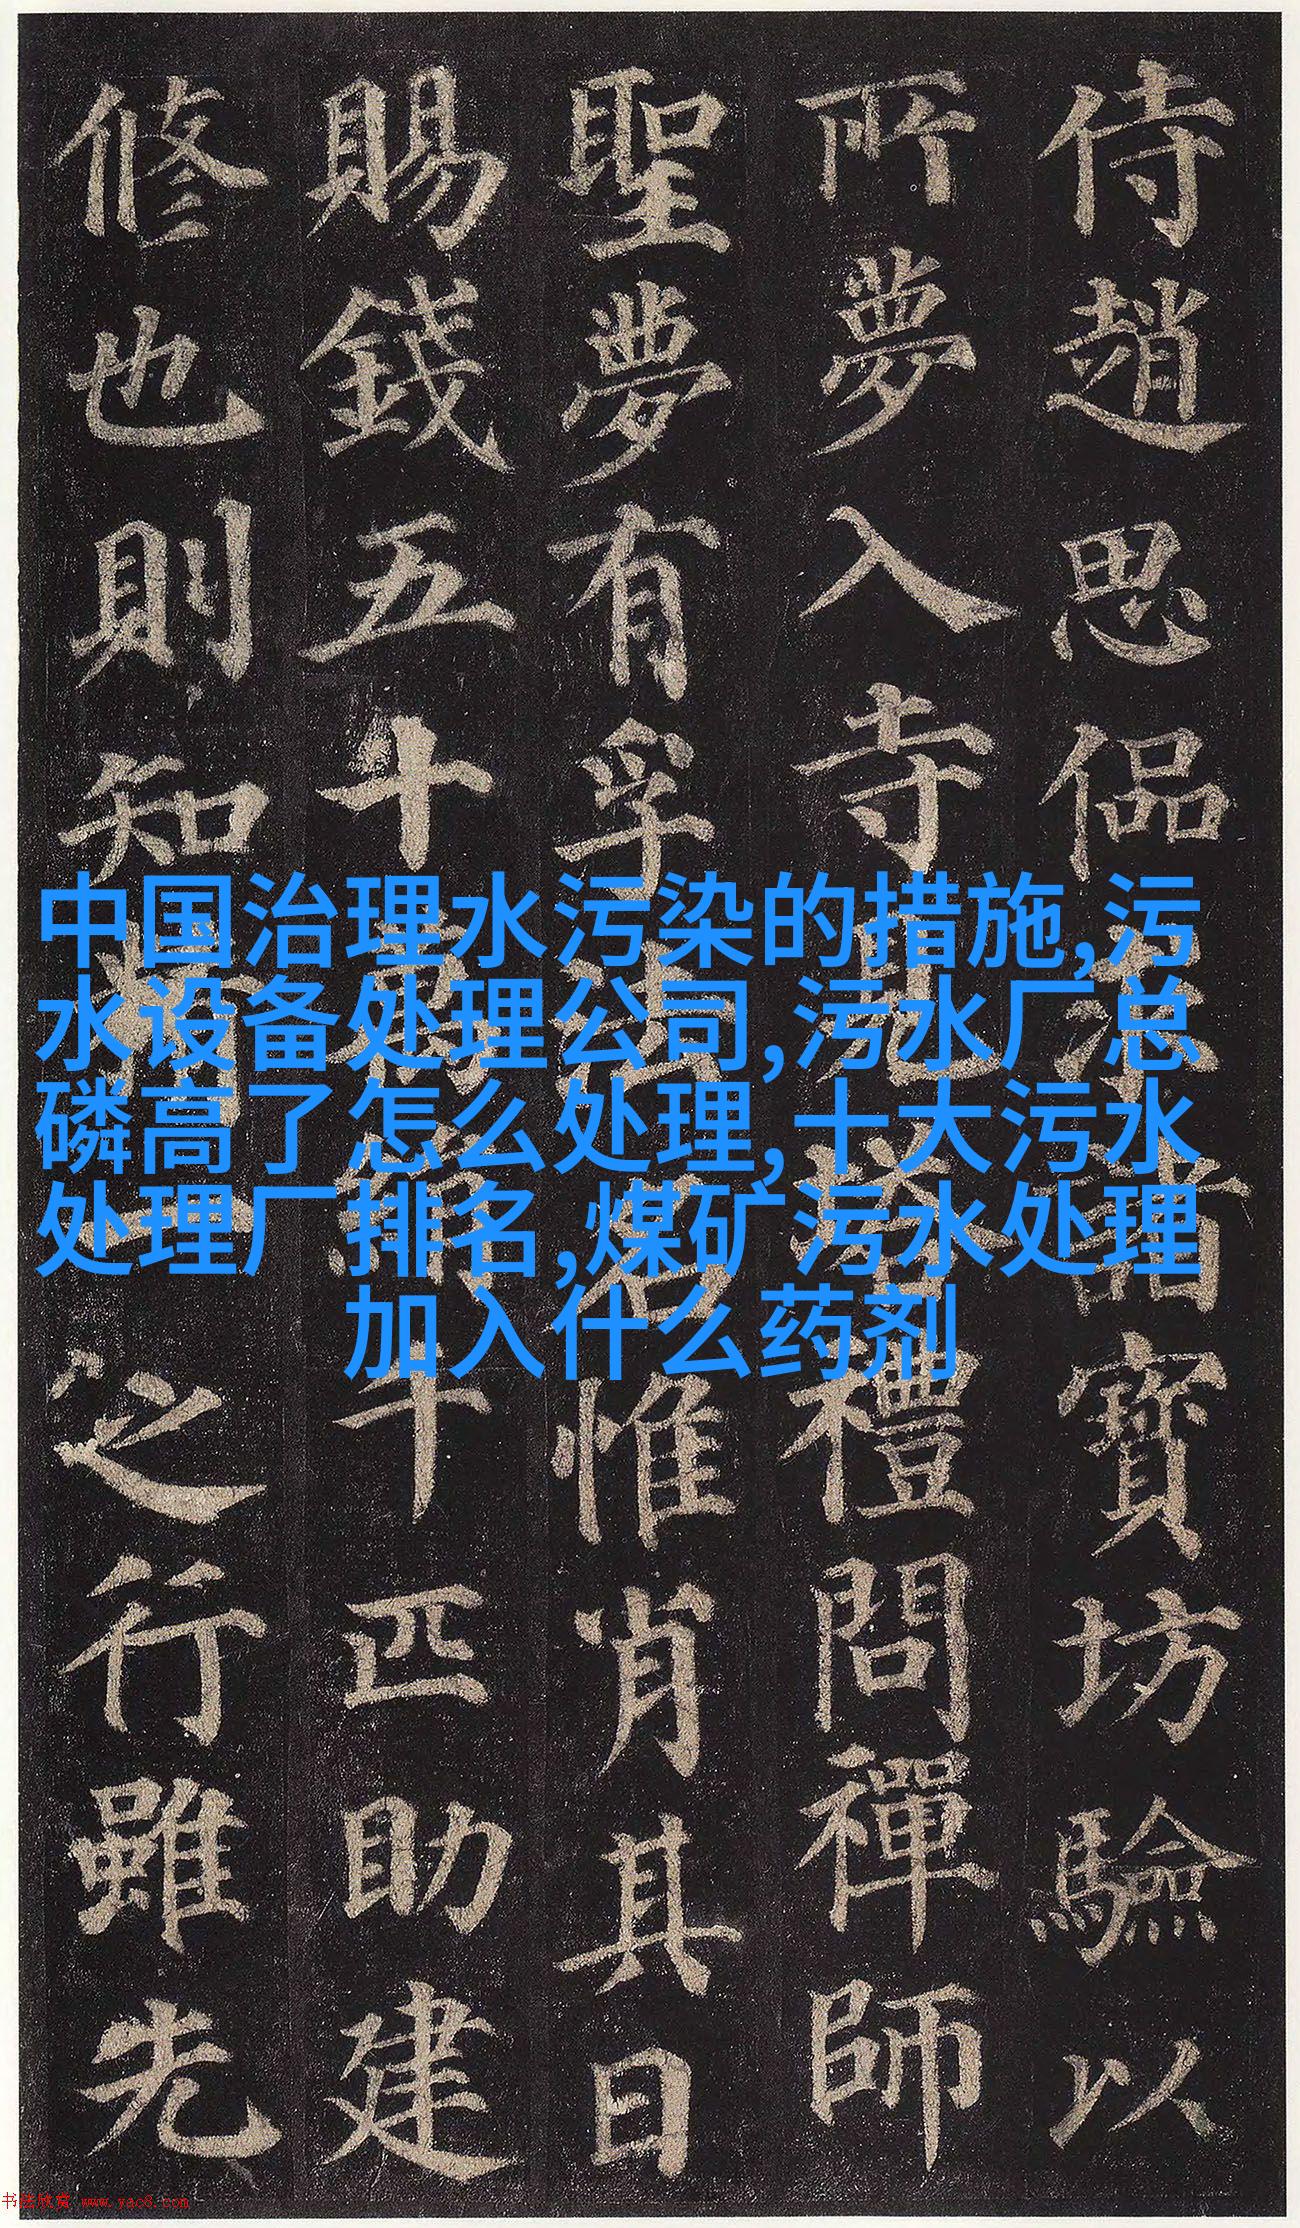 侍趙思偘諸寶坊驗以
所夢入寺塔禮問禪師
聖夢有孚名惟肖其日
賜錢五十千匹助建
修也則知之行雖先
中国治理水污染的措施,污
水设备处理公司,污水厂总
磷高了怎么处理,十大污水
处理厂排名,煤矿污水处理
加入什么药剂
书法欣赏 www.yac8.com